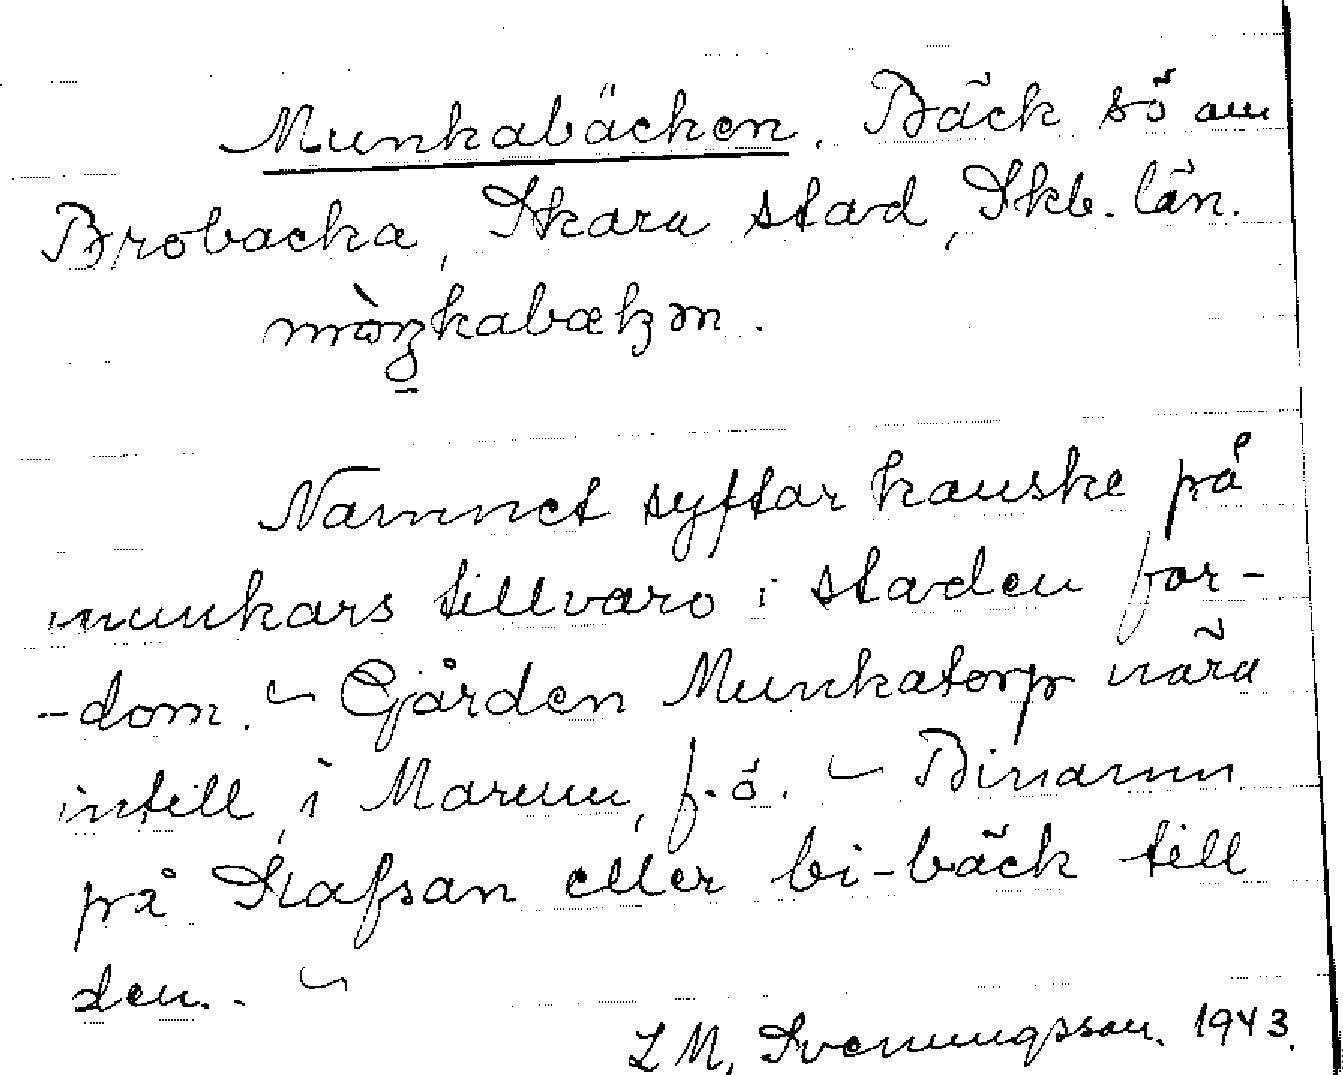 Munkabäcken. Bäck sö om
Brobacka, Skara stad, Skb. län.
mòŋkabækən.
Namnet syftar kanske på
munkars tillvaro i staden for-
-dom. – Gården Munkatorp nära
intill, i Marum, f.ö. – Binamn
på Flafsan eller bi-bäck till
den. –
L M, Svenungsson. 1943.